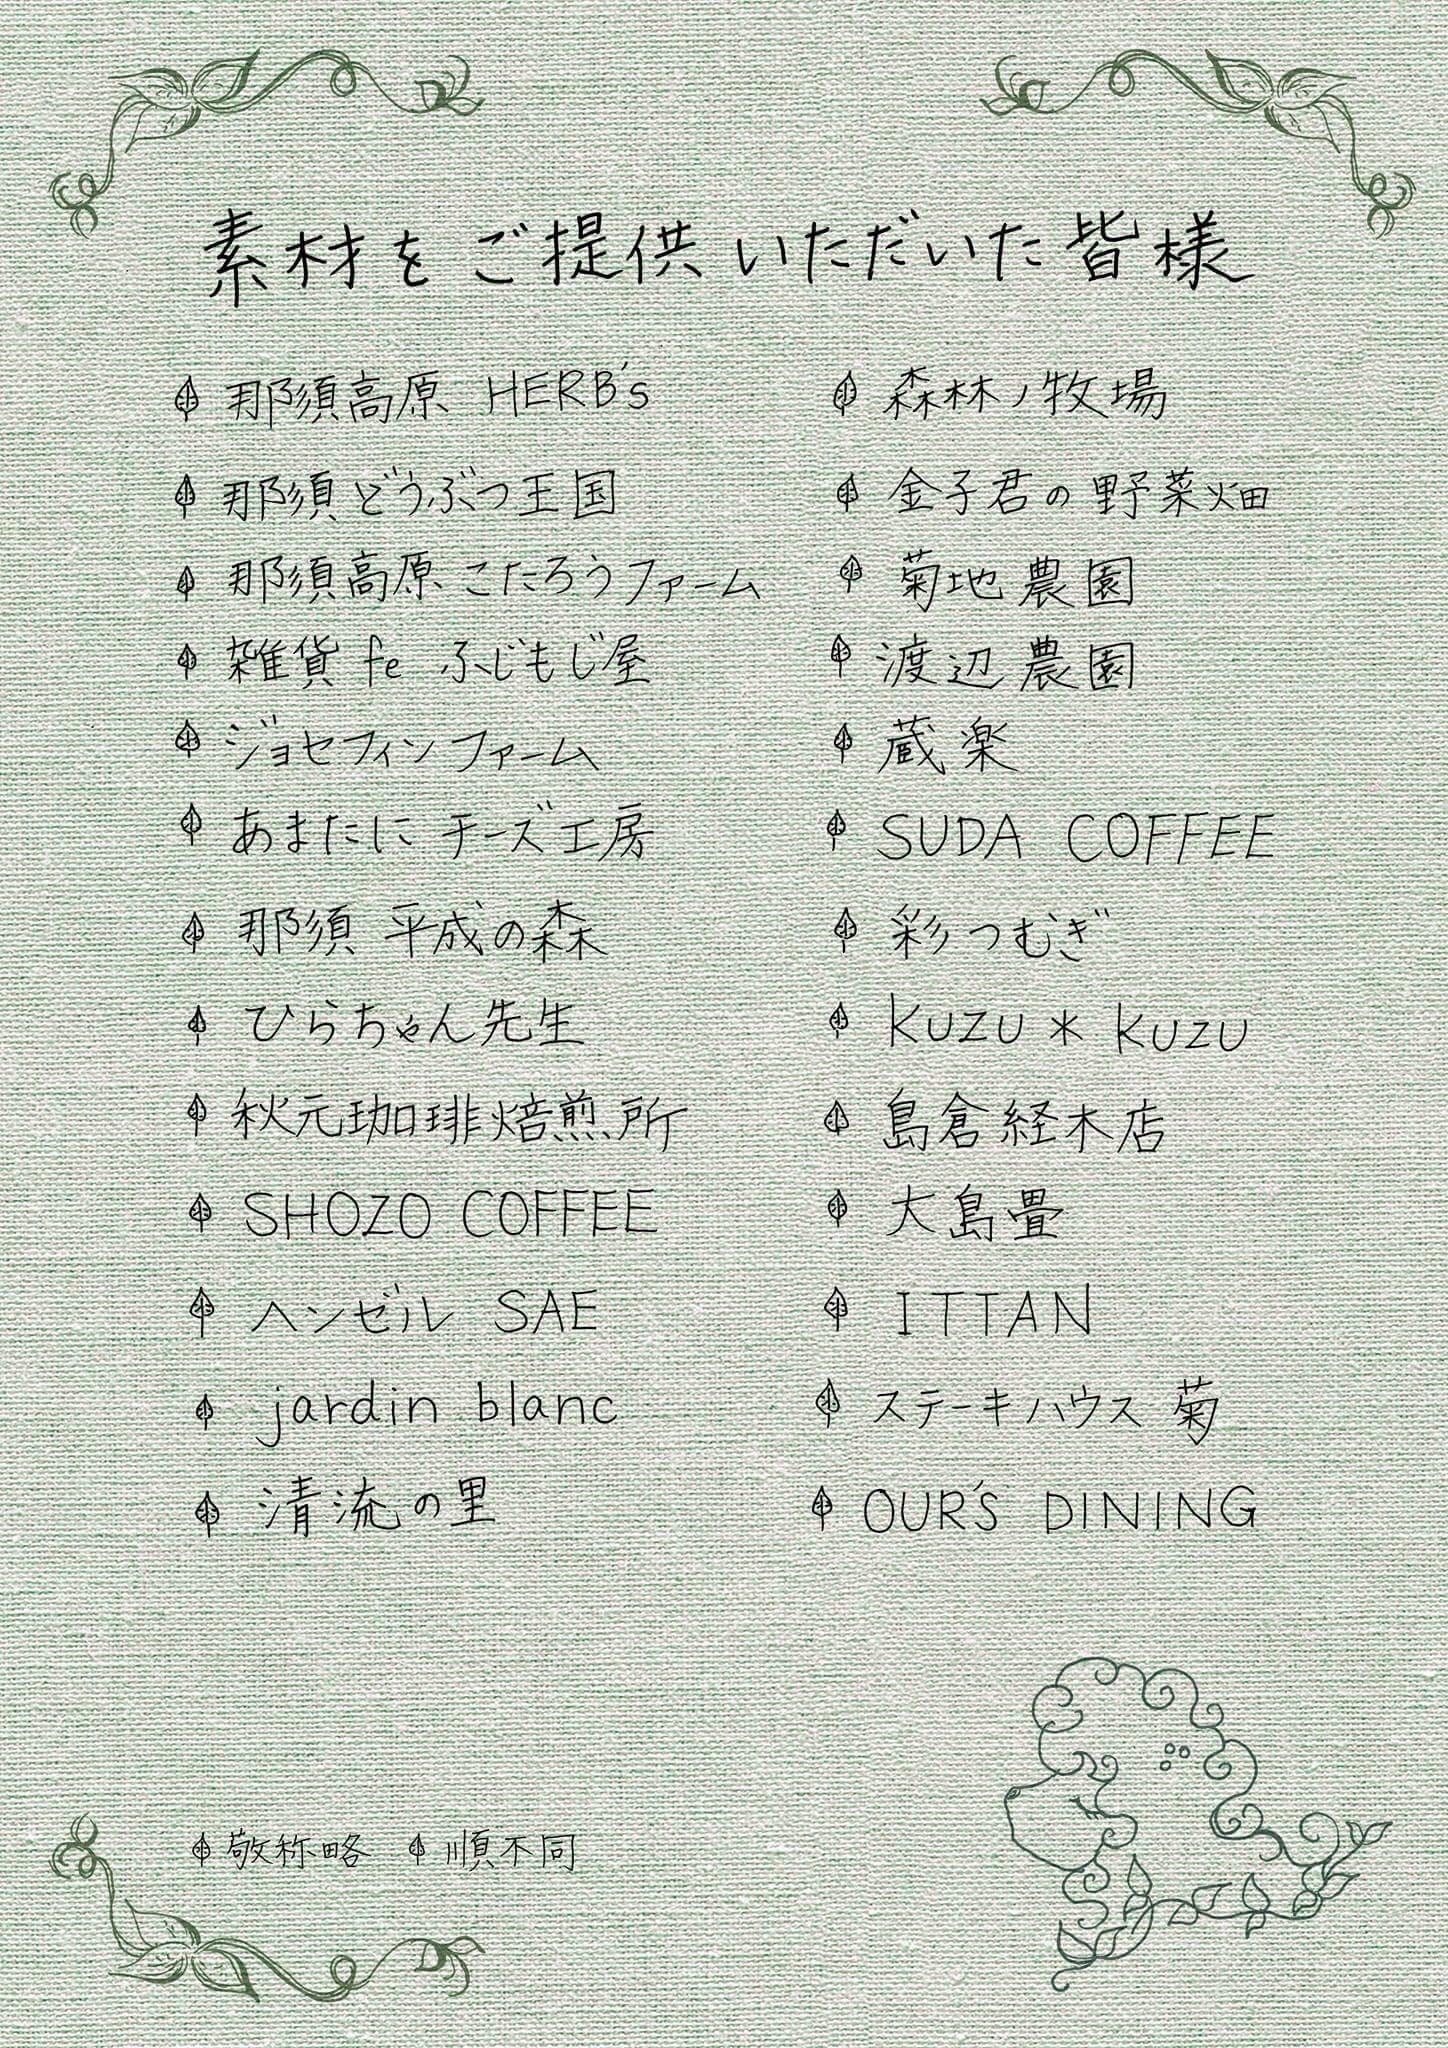 素材をご提供いただいた皆様
那須高原 HERB's
那須どうぶつ王国
那須高原 こたろうファーム
雑貨 fe ふじもじ屋
ジョセフィンファーム
あまたにチーズ工房
那須 平成の森
ひらちゃん先生
秋元珈琲焙煎所
SHOZO COFFEE
ヘンゼル SAE
jardin blanc
清流の里
森林ノ牧場
金子君の野菜畑
菊地農園
渡辺農園
蔵楽
SUDA COFFEE
彩つむぎ
KUZU * KUZU
島倉経木店
大島畳
ITTAN
ステーキハウス 菊
OUR'S DINING
敬称略 順不同